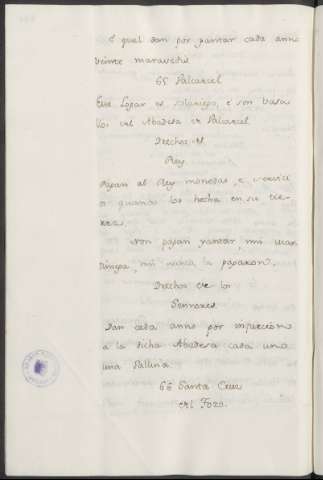 è quel dan por yantar cada anno
veinte maravedis
65 Palacicel
Este Logar es solariego, e son basa
llos del Abadesa de Palacicel
Drechos del
Rey
Pagan al Rey monedas, e servici
o quando los hecha en su tie-
rra
Non pagan yantar, nin mar-
tiniega, nin nunca la pagaron.
Drechos de los
Sennores
Dan cada anno por infurcion
a la dicha Abadesa cada uno
una Gallina.
66 Santa Cruz
del Pozo.